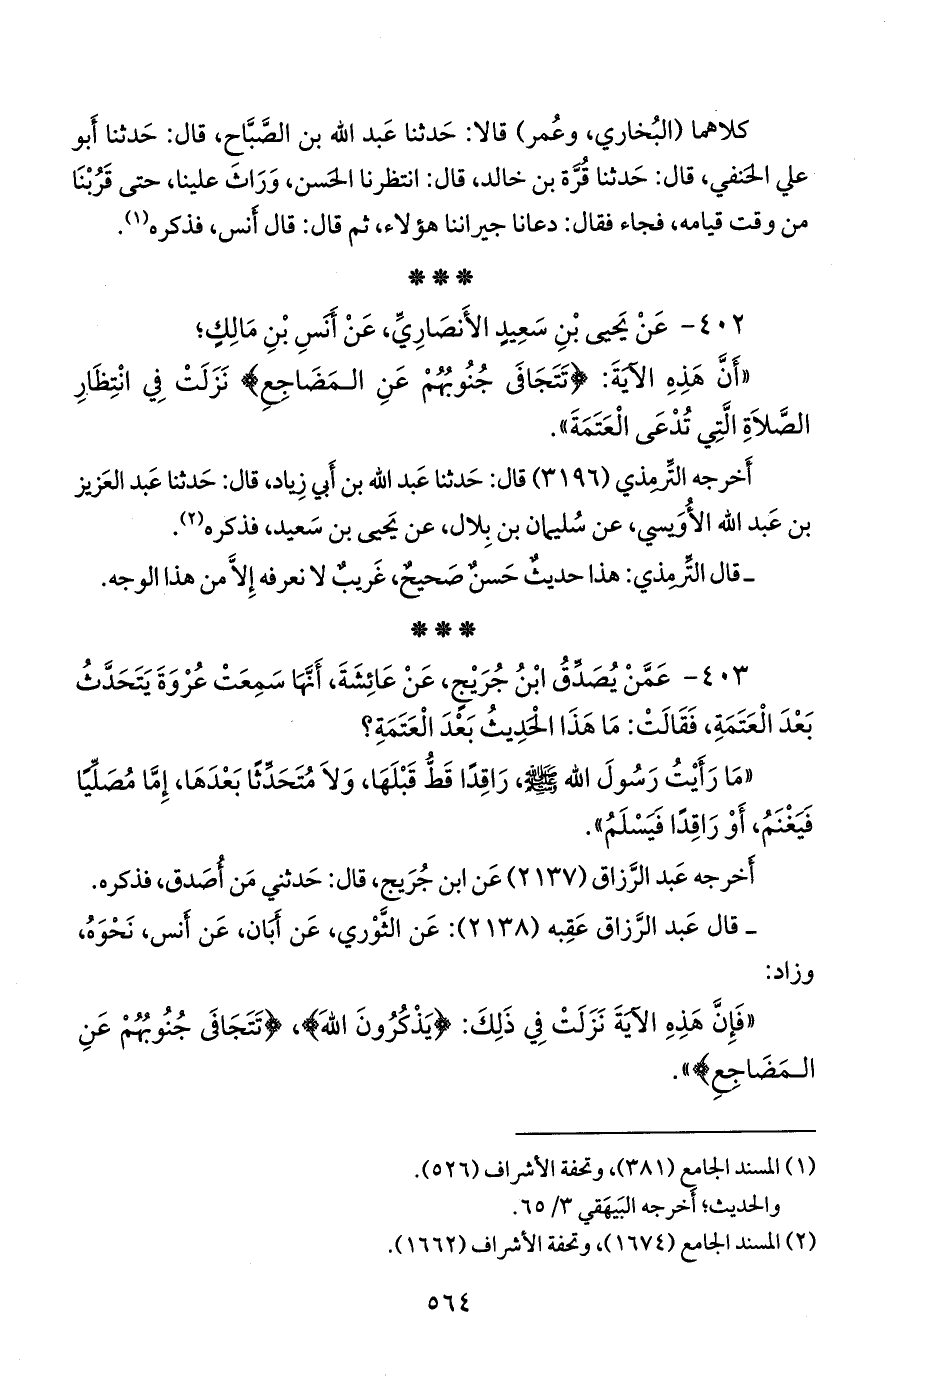 كلاهما (البُخاري، وعُمر) قالا: حَدثنا عَبد الله بن الصَّبَّاح، قال: حَدثنا أَبو
علي الحَنفي، قال: حَدثنا قُرَّة بن خالد، قال: انتظرنا الحَسن، وَرَاثَ علينا، حتى قَرُبْنَا
من وقت قيامه، فجاء فقال: دعانا جيراننا هؤلاء، ثم قال: قال أَنس، فذكره(١).
* * *
٤٠٢- عَنْ يَحيى بْنِ سَعِيدٍ الأَنصَارِيِّ، عَنْ أَنَسِ بْنِ مَالِكٍ؛
«أَنَّ هَذِهِ الآيَةَ: ﴿تَتَجَافَى جُنُوبُهُمْ عَنِ الـمَضَاجِعِ﴾ نَزَلَتْ فِي انْتِظَارِ
الصَّلاَةِ الَّتِي تُدْعَى الْعَتَمَةَ».
أَخرجه التِّرمِذي (٣١٩٦) قال: حَدثنا عَبد الله بن أَبي زِياد، قال: حَدثنا عَبد العَزيز
بن عَبد الله الأُوَيسي، عن سُليمان بن بِلال، عن يَحيى بن سَعيد، فذكره(٢).
ـ قال التِّرمِذي: هذا حديثٌ حَسنٌ صَحيحٌ، غَريبٌ لا نعرفه إِلاَّ من هذا الوجه.
* * *
٤٠٣- عَمَّنْ يُصَدِّقُ ابْنُ جُرَيْجٍ، عَنْ عَائِشَةَ، أَنَّهَا سَمِعَتْ عُرْوَةَ يَتَحَدَّثُ
بَعْدَ الْعَتَمَةِ، فَقَالَتْ: مَا هَذَا الْحَدِيثُ بَعْدَ الْعَتَمَةِ؟
«مَا رَأَيْتُ رَسُولَ الله ﷺ، رَاقِدًا قَطُّ قَبْلَهَا، وَلاَ مُتَحَدِّثًا بَعْدَهَا، إِمَّا مُصَلِّيًا
فَيَغْنَمُ، أَوْ رَاقِدًا فَيَسْلَمُ».
أَخرجه عَبد الرَّزاق (٢١٣٧) عَن ابن جُرَيج، قال: حَدثني مَن أُصَدق، فذكره.
ـ قال عَبد الرَّزاق عَقِبه (٢١٣٨): عَن الثَّوْري، عَن أَبَان، عَن أَنس، نَحْوَهُ،
وزاد:
«فَإِنَّ هَذِهِ الآيَةَ نَزَلَتْ فِي ذَلِكَ: ﴿يَذْكُرُونَ اللهَ﴾، ﴿تَتَجَافَى جُنُوبُهُمْ عَنِ
الـمَضَاجِعِ﴾».
(١) المسند الجامع (٣٨١)، وتحفة الأشراف (٥٢٦).
والحديث؛ أَخرجه البَيهَقي ٣/ ٦٥.
(٢) المسند الجامع (١٦٧٤)، وتحفة الأشراف (١٦٦٢).
٥٦٤